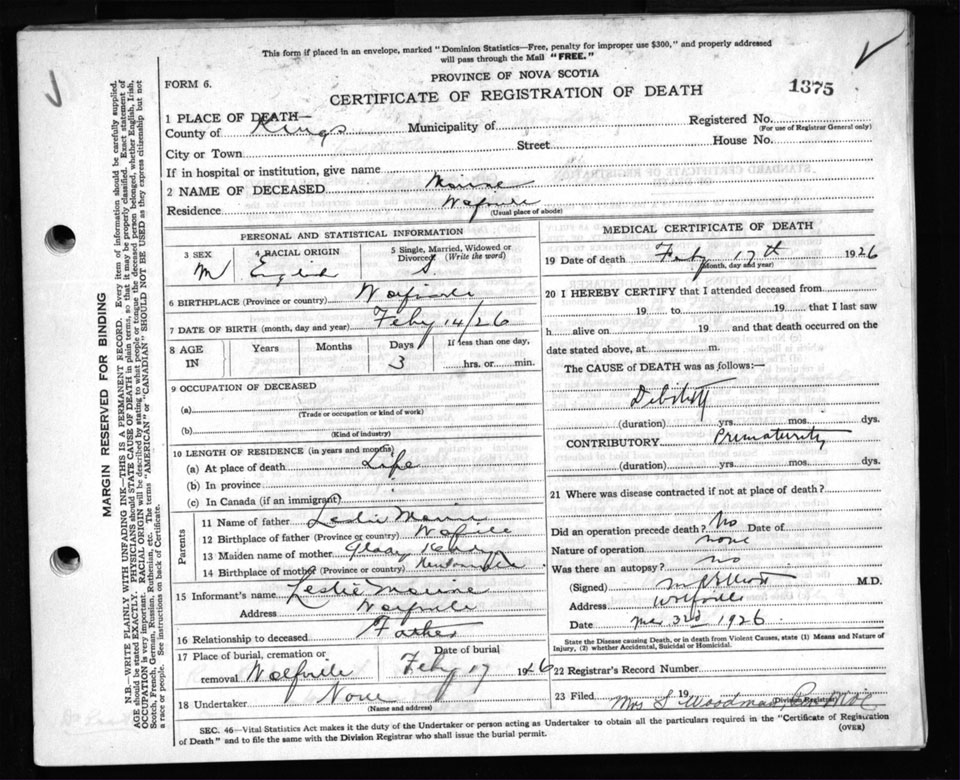 This form if placed in an envelope, marked "Dominion Statistics—Free, penalty for improper use $300," and properly addressed
will pass through the Mail "FREE."
PROVINCE OF NOVA SCOTIA
FORM 6.
CERTIFICATE OF REGISTRATION OF DEATH
1375
1 PLACE OF DEATH—
County of Kings Municipality of Registered No.
(For use of Registrar General only)
City or Town Street House No.
If in hospital or institution, give name
2 NAME OF DECEASED
Residence Wolfville
(Usual place of abode)
PERSONAL AND STATISTICAL INFORMATION
3 SEX 4 RACIAL ORIGIN 5 Single, Married, Widowed or Divorced (Write the word)
M English S.
6 BIRTHPLACE (Province or country) Wolfville
7 DATE OF BIRTH (month, day and year) Feby 14/26
8 AGE IN Years Months Days 3 If less than one day, hrs. or min.
9 OCCUPATION OF DECEASED
(a)
(Trade or occupation or kind of work)
(b)
(Kind of industry)
10 LENGTH OF RESIDENCE (in years and months)
(a) At place of death Life
(b) In province
(c) In Canada (if an immigrant)
Parents
11 Name of father Leslie
12 Birthplace of father (Province or country) Wolfville
13 Maiden name of mother
14 Birthplace of mother (Province or country)
15 Informant's name Leslie
Address Wolfville
16 Relationship to deceased Father
17 Place of burial, cremation or removal Wolfville Date of burial Feby 17 1926
18 Undertaker None
(Name and address)
MEDICAL CERTIFICATE OF DEATH
19 Date of death Feby 17th 1926
(Month, day and year)
20 I HEREBY CERTIFY that I attended deceased from
19 to 19 that I last saw
h alive on 19 and that death occurred on the
date stated above, at m.
The CAUSE of DEATH was as follows:—
Debility
(duration) yrs. mos. dys.
CONTRIBUTORY Prematurity
(duration) yrs. mos. dys.
21 Where was disease contracted if not at place of death?
Did an operation precede death? No Date of
Nature of operation none
Was there an autopsy? no
(Signed) M.D.
Address Wolfville
Date 1926
State the Disease causing Death, or in death from Violent Causes, state (1) Means and Nature of
Injury, (2) whether Accidental, Suicidal or Homicidal.
22 Registrar's Record Number
23 Filed 19 Mrs S Woodman
Division Registrar
SEC. 46—Vital Statistics Act makes it the duty of the Undertaker or person acting as Undertaker to obtain all the particulars required in the "Certificate of Registration
of Death" and to file the same with the Division Registrar who shall issue the burial permit.
(OVER)
MARGIN RESERVED FOR BINDING
N.B.—WRITE PLAINLY WITH UNFADING INK—THIS IS A PERMANENT RECORD. Every item of information should be carefully supplied.
AGE should be stated EXACTLY. PHYSICIANS should STATE CAUSE OF DEATH in plain terms, so that it may be properly classified. Exact statement of
OCCUPATION is very important. RACIAL ORIGIN will be described by stating to what people or tongue the deceased person belonged, whether English, Irish,
Scotch, French, German, Russian, Ruthenian, etc. The terms "AMERICAN" or "CANADIAN" SHOULD NOT BE USED as they express citizenship but not
a race or people. See instructions on back of Certificate.